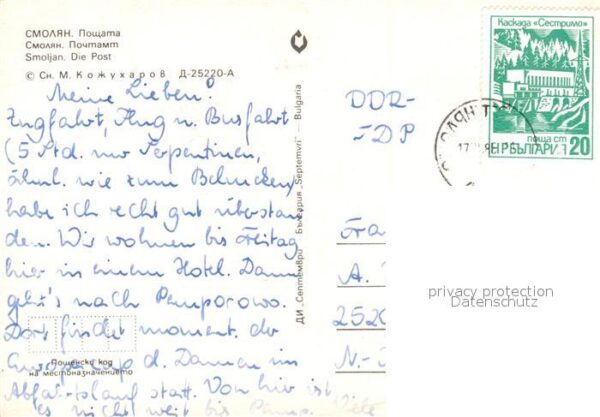 СМОЛЯН. Пощата
Смолян. Почтамт
Smoljan. Die Post
© Сн. М. Кожухаров Д-25220-А
Meine Lieben!
Zugfahrt, Flug u. Busfahrt
(5 Std. nur Serpentinen,
ähnl. wie zum
habe ich recht gut überstan
den. Wir wohnen bis Freitag
hier in einem Hotel. Dann
geht's nach Pamporowo.
Dort findet moment. der
Europacup d. Damen im
Abfahrtslauf statt. Von hier ist
es nicht weit bis Pamp. Viele
Пощенски код
на местоназначението
ДИ „Септември" България „Septemvri" — Bulgaria
DDR-
Каскада „Сестримо"
поща ст
НР БЪЛГАРИЯ 20
СМОЛЯН
Fra
A.
252
N.-
privacy protection
Datenschutz